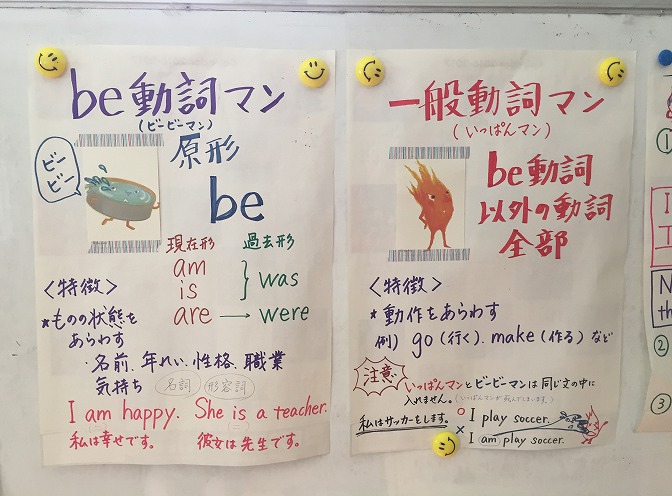 be動詞マン
(ビービーマン)
ビー
ビー
原形
be
現在形 過去形
am
is
are
} was
→ were
<特徴>
*ものの状態を
あらわす
・名前、年れい、性格、職業
気持ち 名詞 形容詞
I am happy. She is a teacher.
私は幸せです。 彼女は先生です。
一般動詞マン
(いっぱんマン)
be動詞
以外の動詞
全部
<特徴>
*動作をあらわす
例) go(行く)、make(作る)など
注意
いっぱんマンとビービーマンは同じ文の中に
入れません。(いっぱんマンが死んでしまいます。)
私はサッカーをします。
○ I play soccer.
× I am play soccer.
①
I
I
N
th
②
③